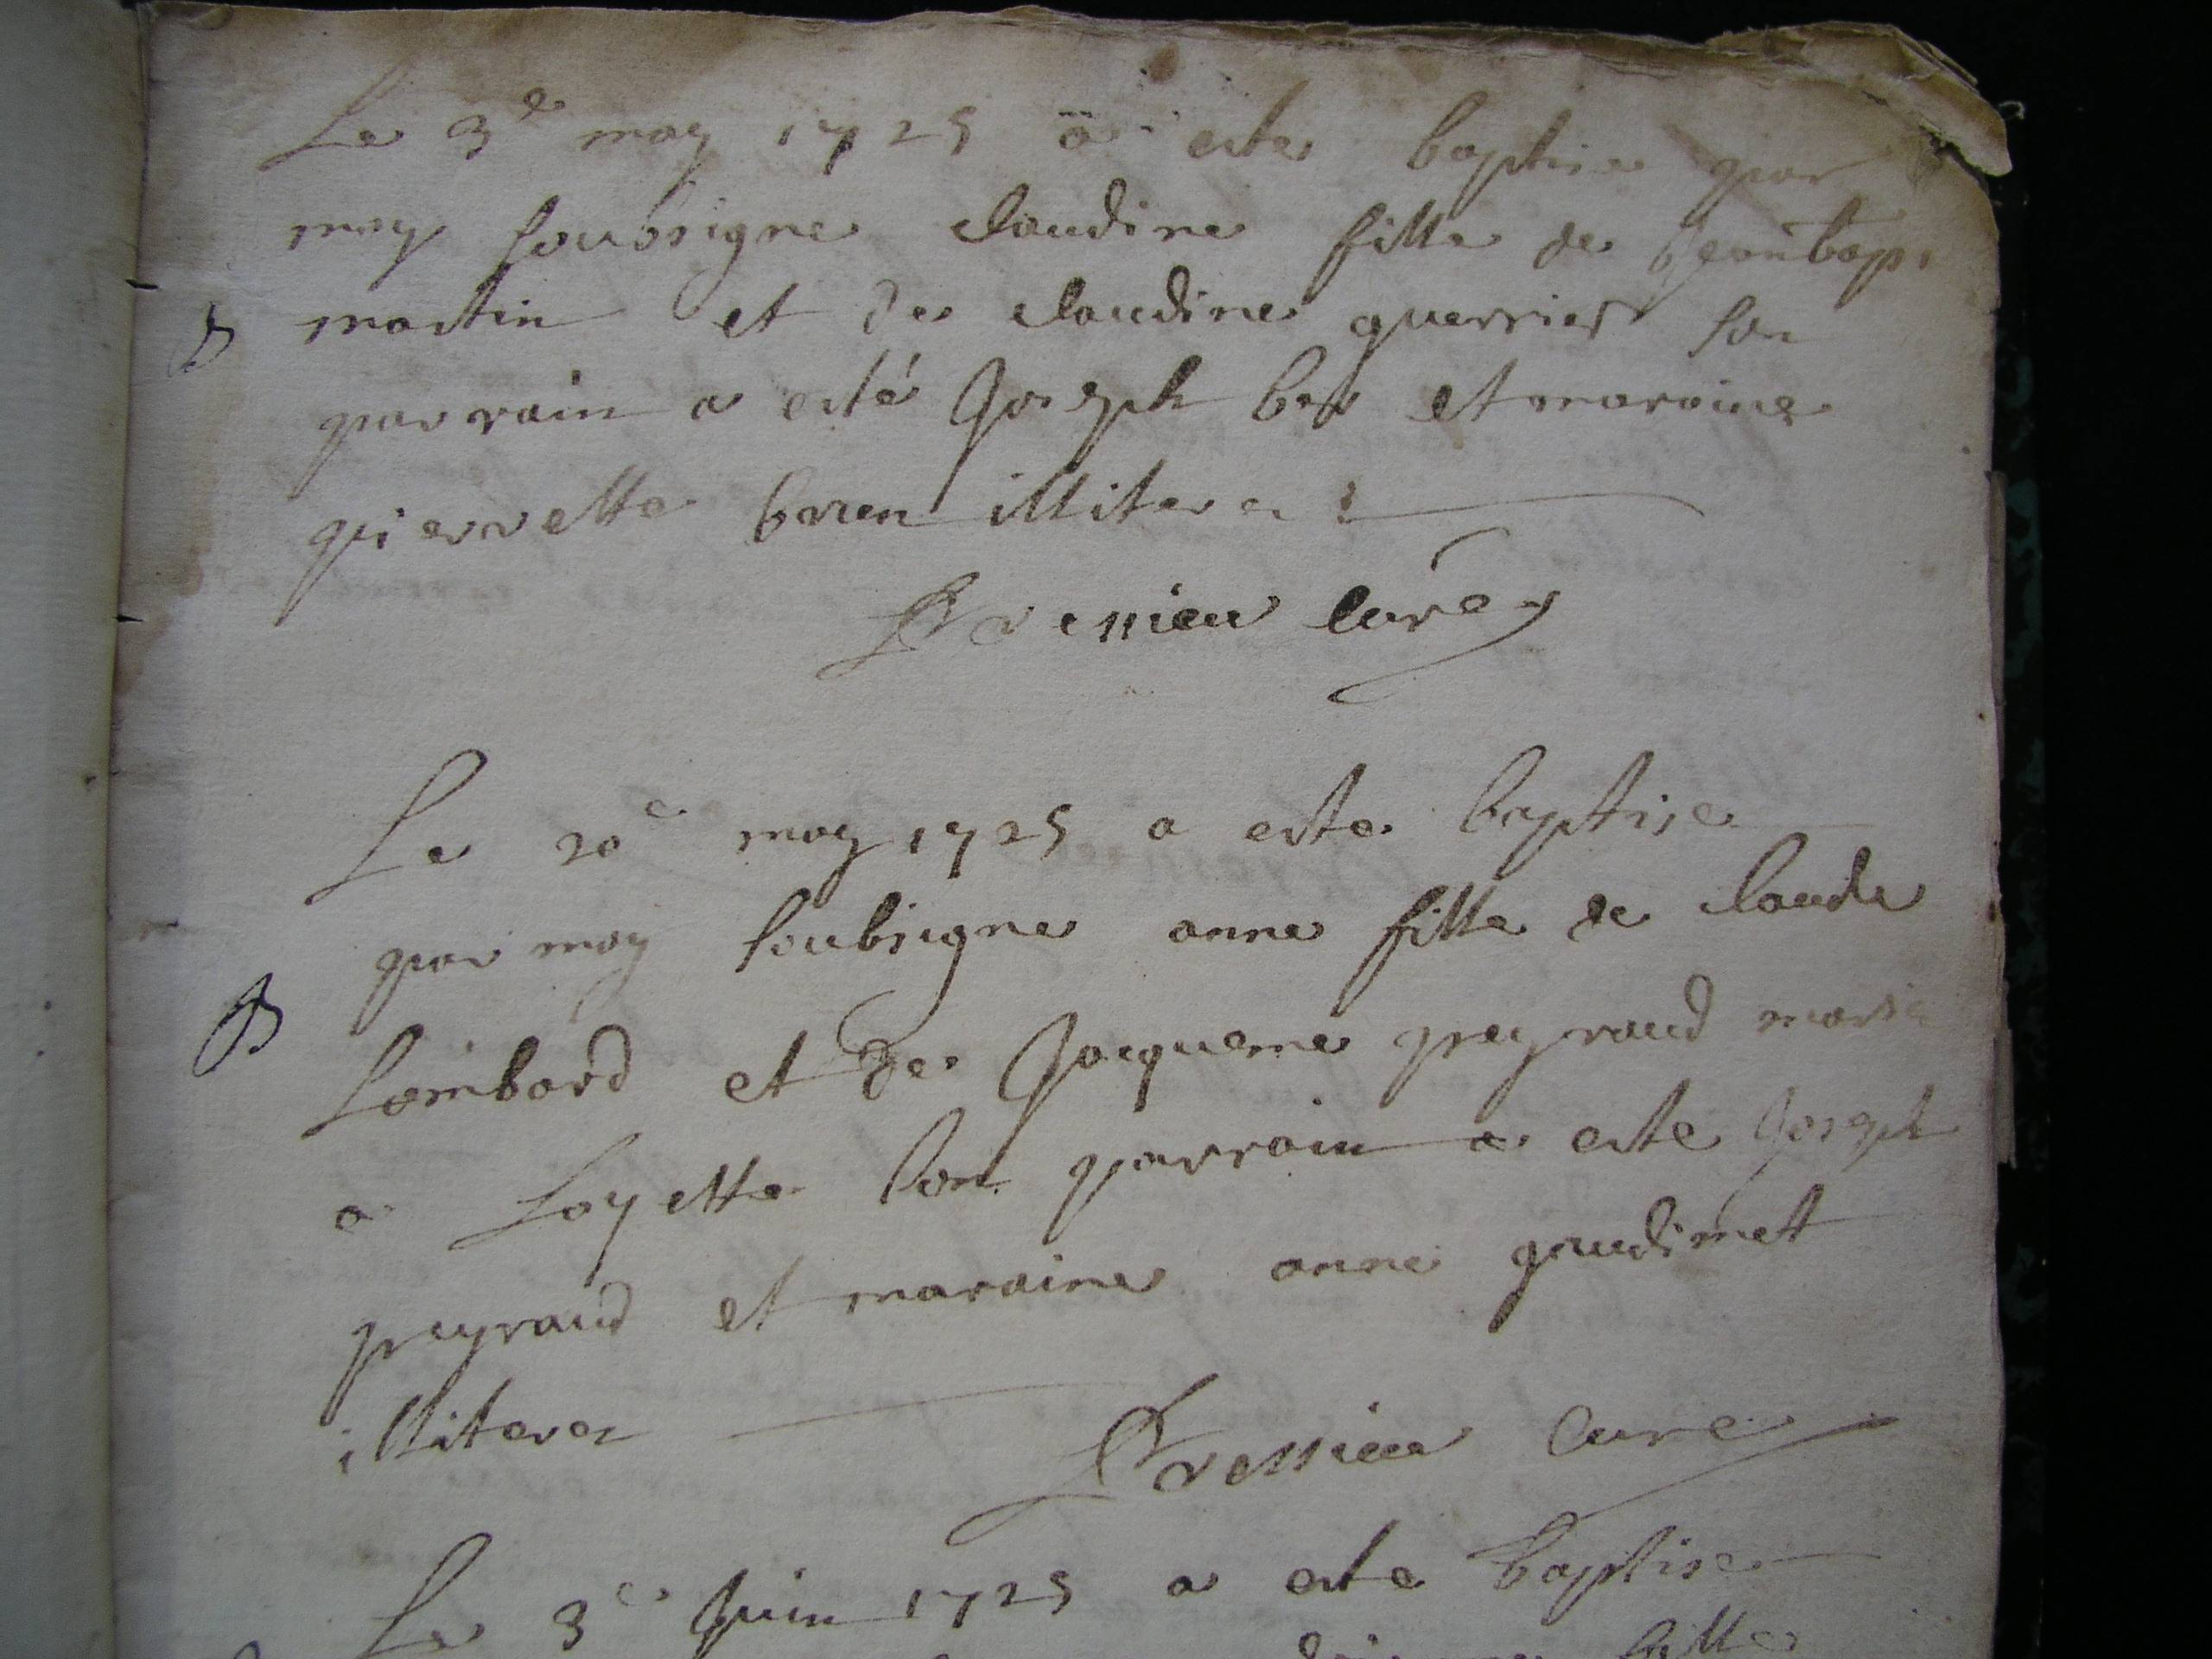 Le 3e may 1725 a este baptise par
moy soubsigne claudine fille de Jean bap.
B martin et de claudine guerrier son
parrain a esté Joseph et maraine
pierrette illiteres
Dressieu curé
Le 20e may 1725 a este baptise
par moy soubsigne anne fille de claude
B Lombard et de Jacqueme peyraud marie
a Loyette son parrain a este Joseph
peyraud et maraine anne gaudimet
illiteres
Dressieu cure
Le 3e Juin 1725 a este baptise
fille